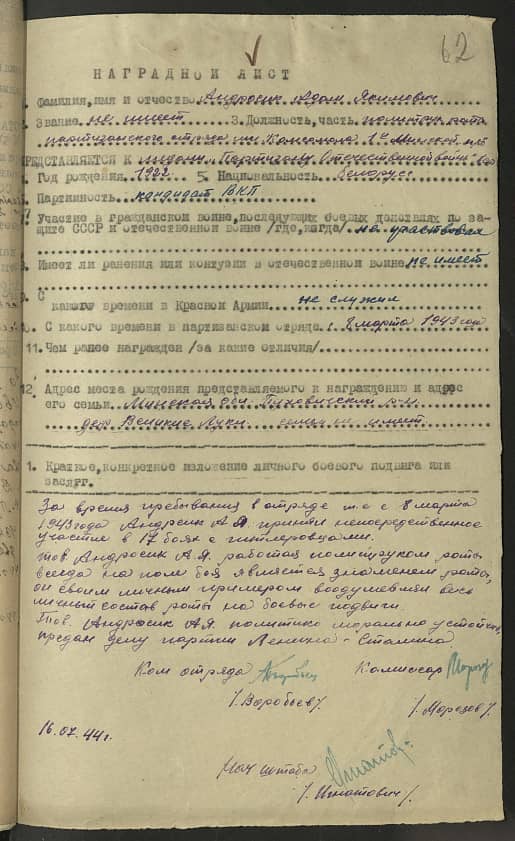 62
НАГРАДНОЙ ЛИСТ
Фамилия,имя и отчество Андросик Адам Якимович
2. Звание не имеет 3.Должность,часть политрук роты
партизанского отряда им Комсомола 1ой Минской п/б
ПРЕДСТАВЛЯЕТСЯ К медали "Партизану Отечественной войны"
4. Год рождения 1922 5 Национальность Белорус
Партийность кандидат ВКП
7. Участие в гражданской войне,последующих боевых действиях по за-
щите СССР и отечественной войне /где,когда/ не участвовал
8. Имеет ли ранения или контузии в отечественной войне не имеет
9. С
какого времени в Красной Армии не служил
10. С какого времени в партизанском отряде: 8 марта 1943 года
11. Чем ранее награжден /за какие отличия/
12. Адрес места рождения представляемого к награждению и адрес
его семьи. Минская обл. Пуховичский р-н
дер. Великие Луки семьи не имеет
1. Краткое,конкретное изложение личного боевого подвига или
заслуг.
За время пребывания в отряде т.е с 8 марта
1943 года Андросик А Я принял непосредственное
участие в 17 боях с гитлеровцами.
тов Андросик А.Я. работая политруком роты
всегда на поле боя является знаменем роты,
он своим личным примером воодушевлял весь
личный состав роты на боевые подвиги.
Тов. Андросик А.Я. политико морально устойчив,
предан делу партии Ленина - Сталина
Ком отряда Комиссар
/. Воробьев /. /. Морозов /.
16.07.44 г.
Нач штаба
/. Игнатович /.